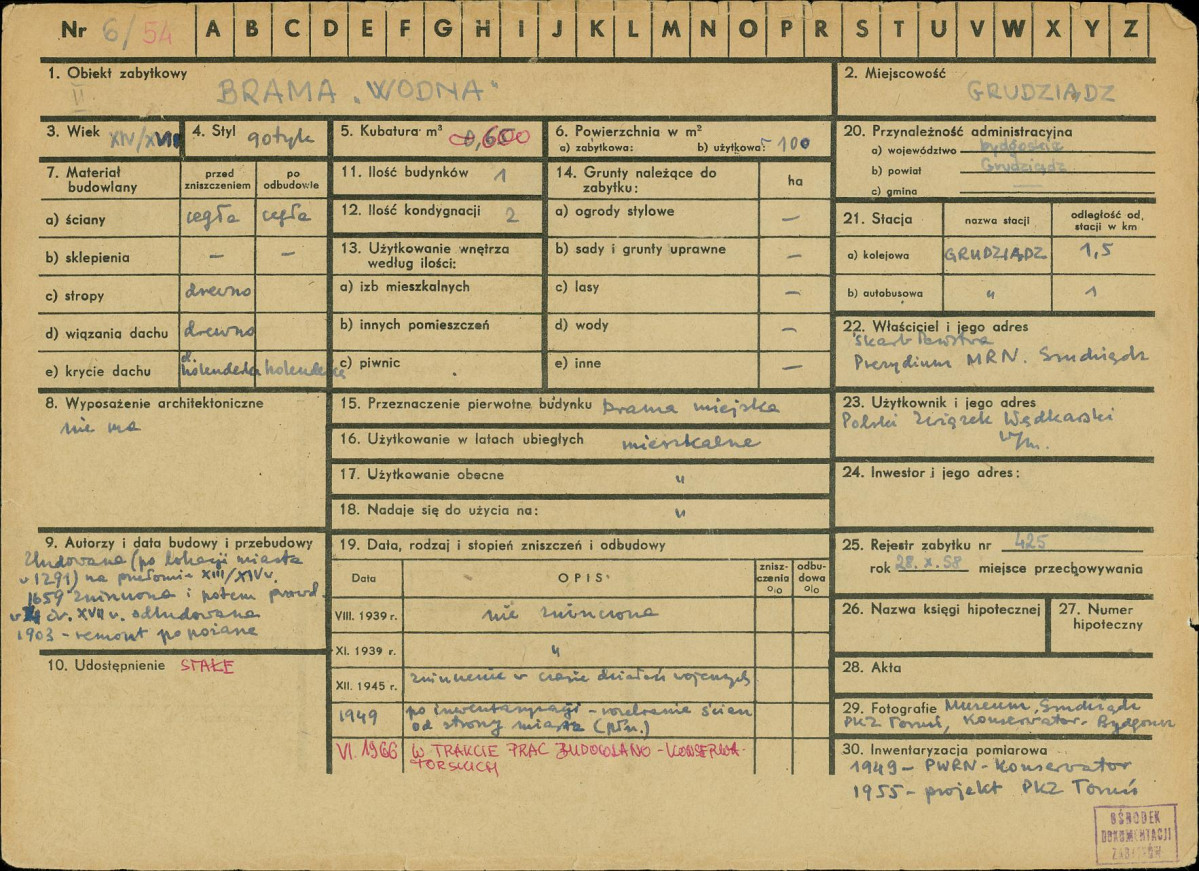 Nr 6/54 A B C D E F G H I J K L M N O P R S T U V W X Y Z
1. Obiekt zabytkowy
II
BRAMA „WODNA"
2. Miejscowość
GRUDZIĄDZ
3. Wiek XIV/XVII
4. Styl gotyk
5. Kubatura m³ 600
6. Powierzchnia w m²
a) zabytkowa: b) użytkowa: 100
20. Przynależność administracyjna
a) województwo bydgoskie
b) powiat Grudziądz
c) gmina —
7. Materiał budowlany
przed zniszczeniem
po odbudowie
a) ściany cegła cegła
b) sklepienia — —
c) stropy drewno
d) wiązania dachu drewno
e) krycie dachu holenderka holenderka
11. Ilość budynków 1
12. Ilość kondygnacji 2
13. Użytkowanie wnętrza
według ilości:
a) izb mieszkalnych
b) innych pomieszczeń
c) piwnic
14. Grunty należące do
zabytku:
ha
a) ogrody stylowe —
b) sady i grunty uprawne —
c) lasy —
d) wody —
e) inne —
21. Stacja
nazwa stacji
odległość od
stacji w km
a) kolejowa GRUDZIĄDZ 1,5
b) autobusowa „ 1
22. Właściciel i jego adres
Skarb Państwa
Prezydium MRN. Grudziądz
8. Wyposażenie architektoniczne
nie ma
15. Przeznaczenie pierwotne budynku brama miejska
16. Użytkowanie w latach ubiegłych mieszkalne
17. Użytkowanie obecne „
18. Nadaje się do użycia na: „
23. Użytkownik i jego adres
Polski Związek Wędkarski
w/m.
24. Inwestor i jego adres:
9. Autorzy i data budowy i przebudowy
Zbudowana (po lokacji miasta
w 1291) na przełomie XIII/XIV w.
1659 zniszczona i potem prawd.
w śr. XVII w. odbudowana
1903 - remont po pożarze
10. Udostępnienie STAŁE
19. Data, rodzaj i stopień zniszczeń i odbudowy
Data
OPIS
znisz-
czenia
o/o
odbu-
dowa
o/o
VIII. 1939 r. nie zniszczona
XI. 1939 r. „
XII. 1945 r. zniszczenie w czasie działań wojennych
1949 po inwentaryzacji - rozebranie ścian
od strony miasta (płn.)
VI. 1966 W TRAKCIE PRAC BUDOWLANO - KONSERWA-
TORSKICH
25. Rejestr zabytku nr 425
rok 28.X.58 miejsce przechowywania
26. Nazwa księgi hipotecznej
27. Numer
hipoteczny
28. Akta
29. Fotografie Museum, Grudziądz
PKZ Toruń, Konserwator - Bydgoszcz
30. Inwentaryzacja pomiarowa
1949 - PWRN - Konserwator
1955 - projekt PKZ Toruń
OŚRODEK
DOKUMENTACJI
ZABYTKÓW